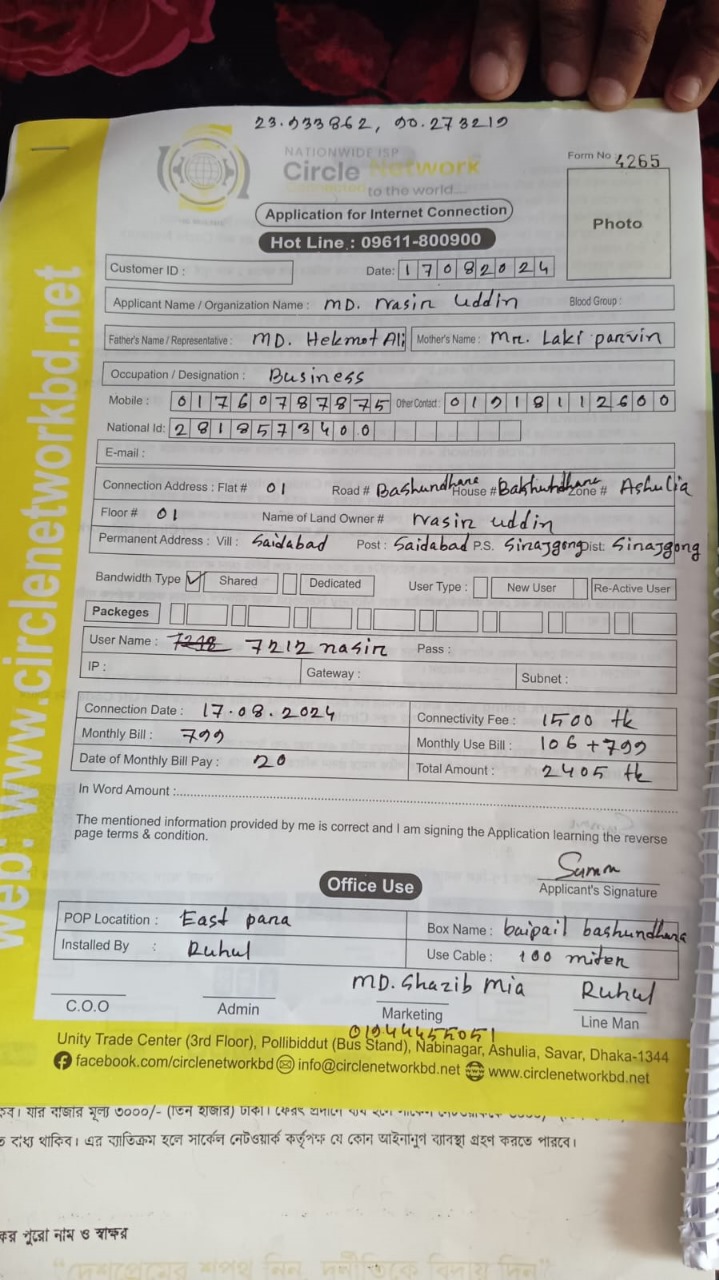 23.933862, 90.273219
NATIONWIDE ISP
Circle Network
Connected to the world...
Form No 4265
Photo
Application for Internet Connection
Hot Line : 09611-800900
Customer ID :
Date: 17082024
Applicant Name / Organization Name : MD. Nasir Uddin Blood Group :
Father's Name / Representative : MD. Hekmot Ali Mother's Name : Mrs. Laki parvin
Occupation / Designation : Business
Mobile : 01760787875 Other Contact : 01918112600
National Id: 2818573400
E-mail :
Connection Address : Flat # 01 Road # Bashundhara House # Bashundhara Zone # Ashulia
Floor # 01 Name of Land Owner # Nasir uddin
Permanent Address : Vill : Saidabad Post : Saidabad P.S. Sirajgong Dist: Sirajgong
Bandwidth Type Shared Dedicated User Type : New User Re-Active User
Packeges
User Name : 7212 nasir Pass :
IP : Gateway : Subnet :
Connection Date : 17.08.2024 Connectivity Fee : 1500 tk
Monthly Bill : 799 Monthly Use Bill : 106+799
Date of Monthly Bill Pay : 20 Total Amount : 2405 tk
In Word Amount :
The mentioned information provided by me is correct and I am signing the Application learning the reverse
page terms & condition.
Applicant's Signature
Office Use
POP Locatition : East para Box Name : baipail bashundhara
Installed By : Ruhul Use Cable : 100 miter
MD. Shazib Mia Ruhul
C.O.O Admin Marketing Line Man
01944455051
Unity Trade Center (3rd Floor), Pollibiddut (Bus Stand), Nabinagar, Ashulia, Savar, Dhaka-1344
facebook.com/circlenetworkbd info@circlenetworkbd.net www.circlenetworkbd.net
web: www.circlenetworkbd.net
যার বাজার মূল্য ৩০০০/- (তিন হাজার) টাকা।
বাধ্য থাকিব। এর ব্যাতিক্রম হলে সার্কেল নেটওয়ার্ক কর্তৃপক্ষ যে কোন আইনানুগ ব্যাবস্থা গ্রহণ করতে পারবে।
পুরো নাম ও স্বাক্ষর
"দেশপ্রেমের শপথ নিন, দুর্নীতিকে বিদায় দিন"